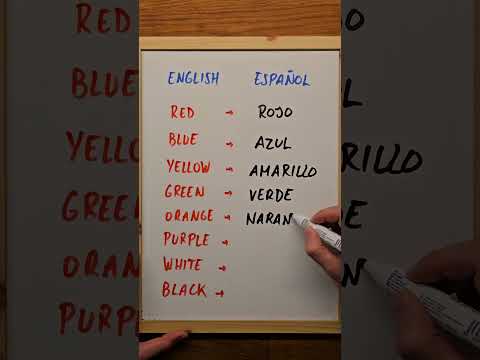 ENGLISH ESPAÑOL
RED → ROJO
BLUE → AZUL
YELLOW → AMARILLO
GREEN → VERDE
ORANGE → NARAN
PURPLE →
WHITE →
BLACK →